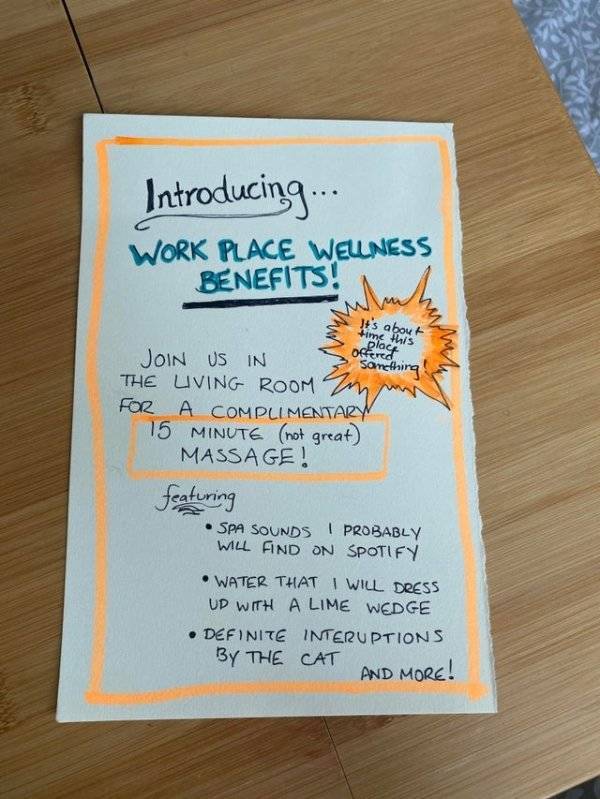 Introducing...
WORK PLACE WELLNESS
BENEFITS!
It's about
time this
place
offered
something!
JOIN US IN
THE LIVING ROOM
FOR A COMPLIMENTARY
15 MINUTE (not great)
MASSAGE!
featuring
• SPA SOUNDS I PROBABLY
WILL FIND ON SPOTIFY
• WATER THAT I WILL DRESS
UP WITH A LIME WEDGE
• DEFINITE INTERUPTIONS
BY THE CAT
AND MORE!